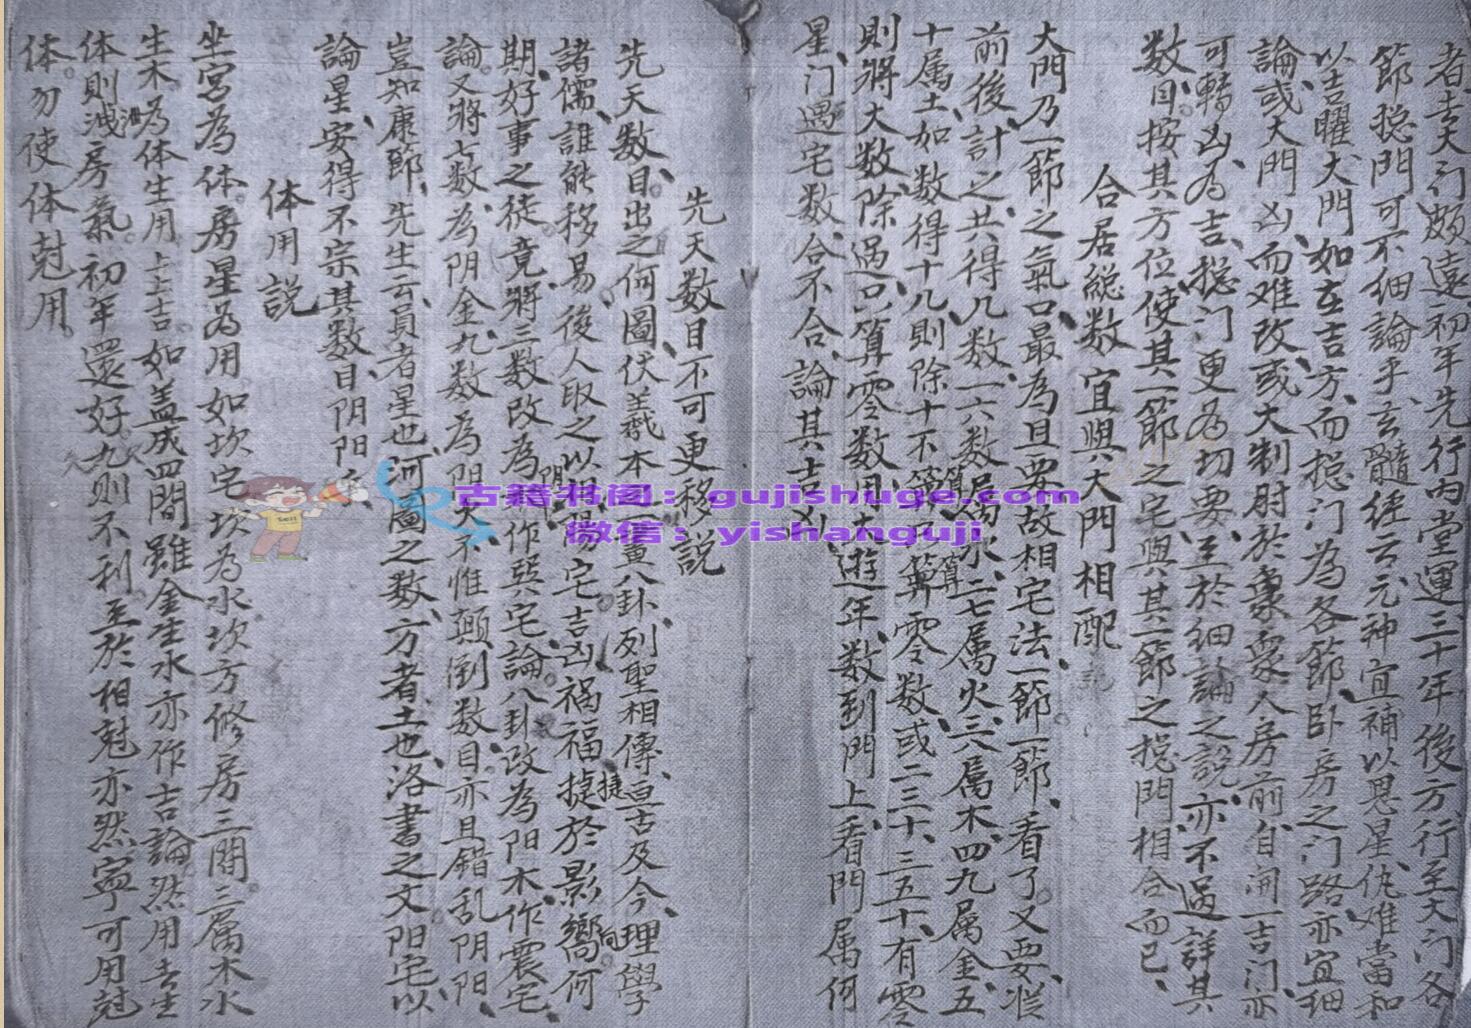 者、去大门頗遠、初年先行内堂運、三十年後方行至大门、各
節捴門可不細論乎、玄髓経云、元神宜補以恩星、仇难當和
以吉曜、大門如在吉方、而捴门為各節卧房之门路、亦宜細
論、或大門凶而难改、或大制肘於衆、衆人房前自開一吉门、亦
可轉凶為吉、捴门更為切要、至於細論之說、亦不過詳其
数目、按其方位、使其一節之宅、與其一節之捴門相合而已、
合居総数宜與大門相配
大門乃一節之氣口、最為且要、故相宅法、一節一節看了、又要從
前後計之、共得几数、一六数属水、二七属火、三八属木、四九属金、五
十属土、如数得十几、則除十不算、只算零数、或二三十、三五十、有零
則將大数除過、只算零数、用大遊年、数到門上、看門属何
星、门遇宅数、合不合、論其吉凶
先天数目不可更移說
先天数目、出之何圖、伏羲本一畫八卦、列聖相傳、亘古及今、理學
諸儒、誰能移易、後人取之、以陽宅吉凶禍福捷於影嚮、何
期好事之徒、竟將三数改為作巽宅論、八卦改為阳木、作震宅
論、又將七数為阴金、九数為阳火、不惟颠倒数目、亦且錯乱阴阳、
豈知康節先生云、員者星也、河圖之数、方者土也、洛書之文、阳宅以
論星、安得不宗其数目阴阳
体用說
坐宮為体、房星為用、如坎宅坎為水、坎方修房三間、三属木、水
生木、為体生用、上上吉、如盖成四間、雖金生水、亦作吉論、然用去生
体、則洩房氣、初年還好、久則不利、至於相尅亦然、寧可用尅
体、勿使体尅用。
古籍书阁：gujishuge.com
微信：yishanguji